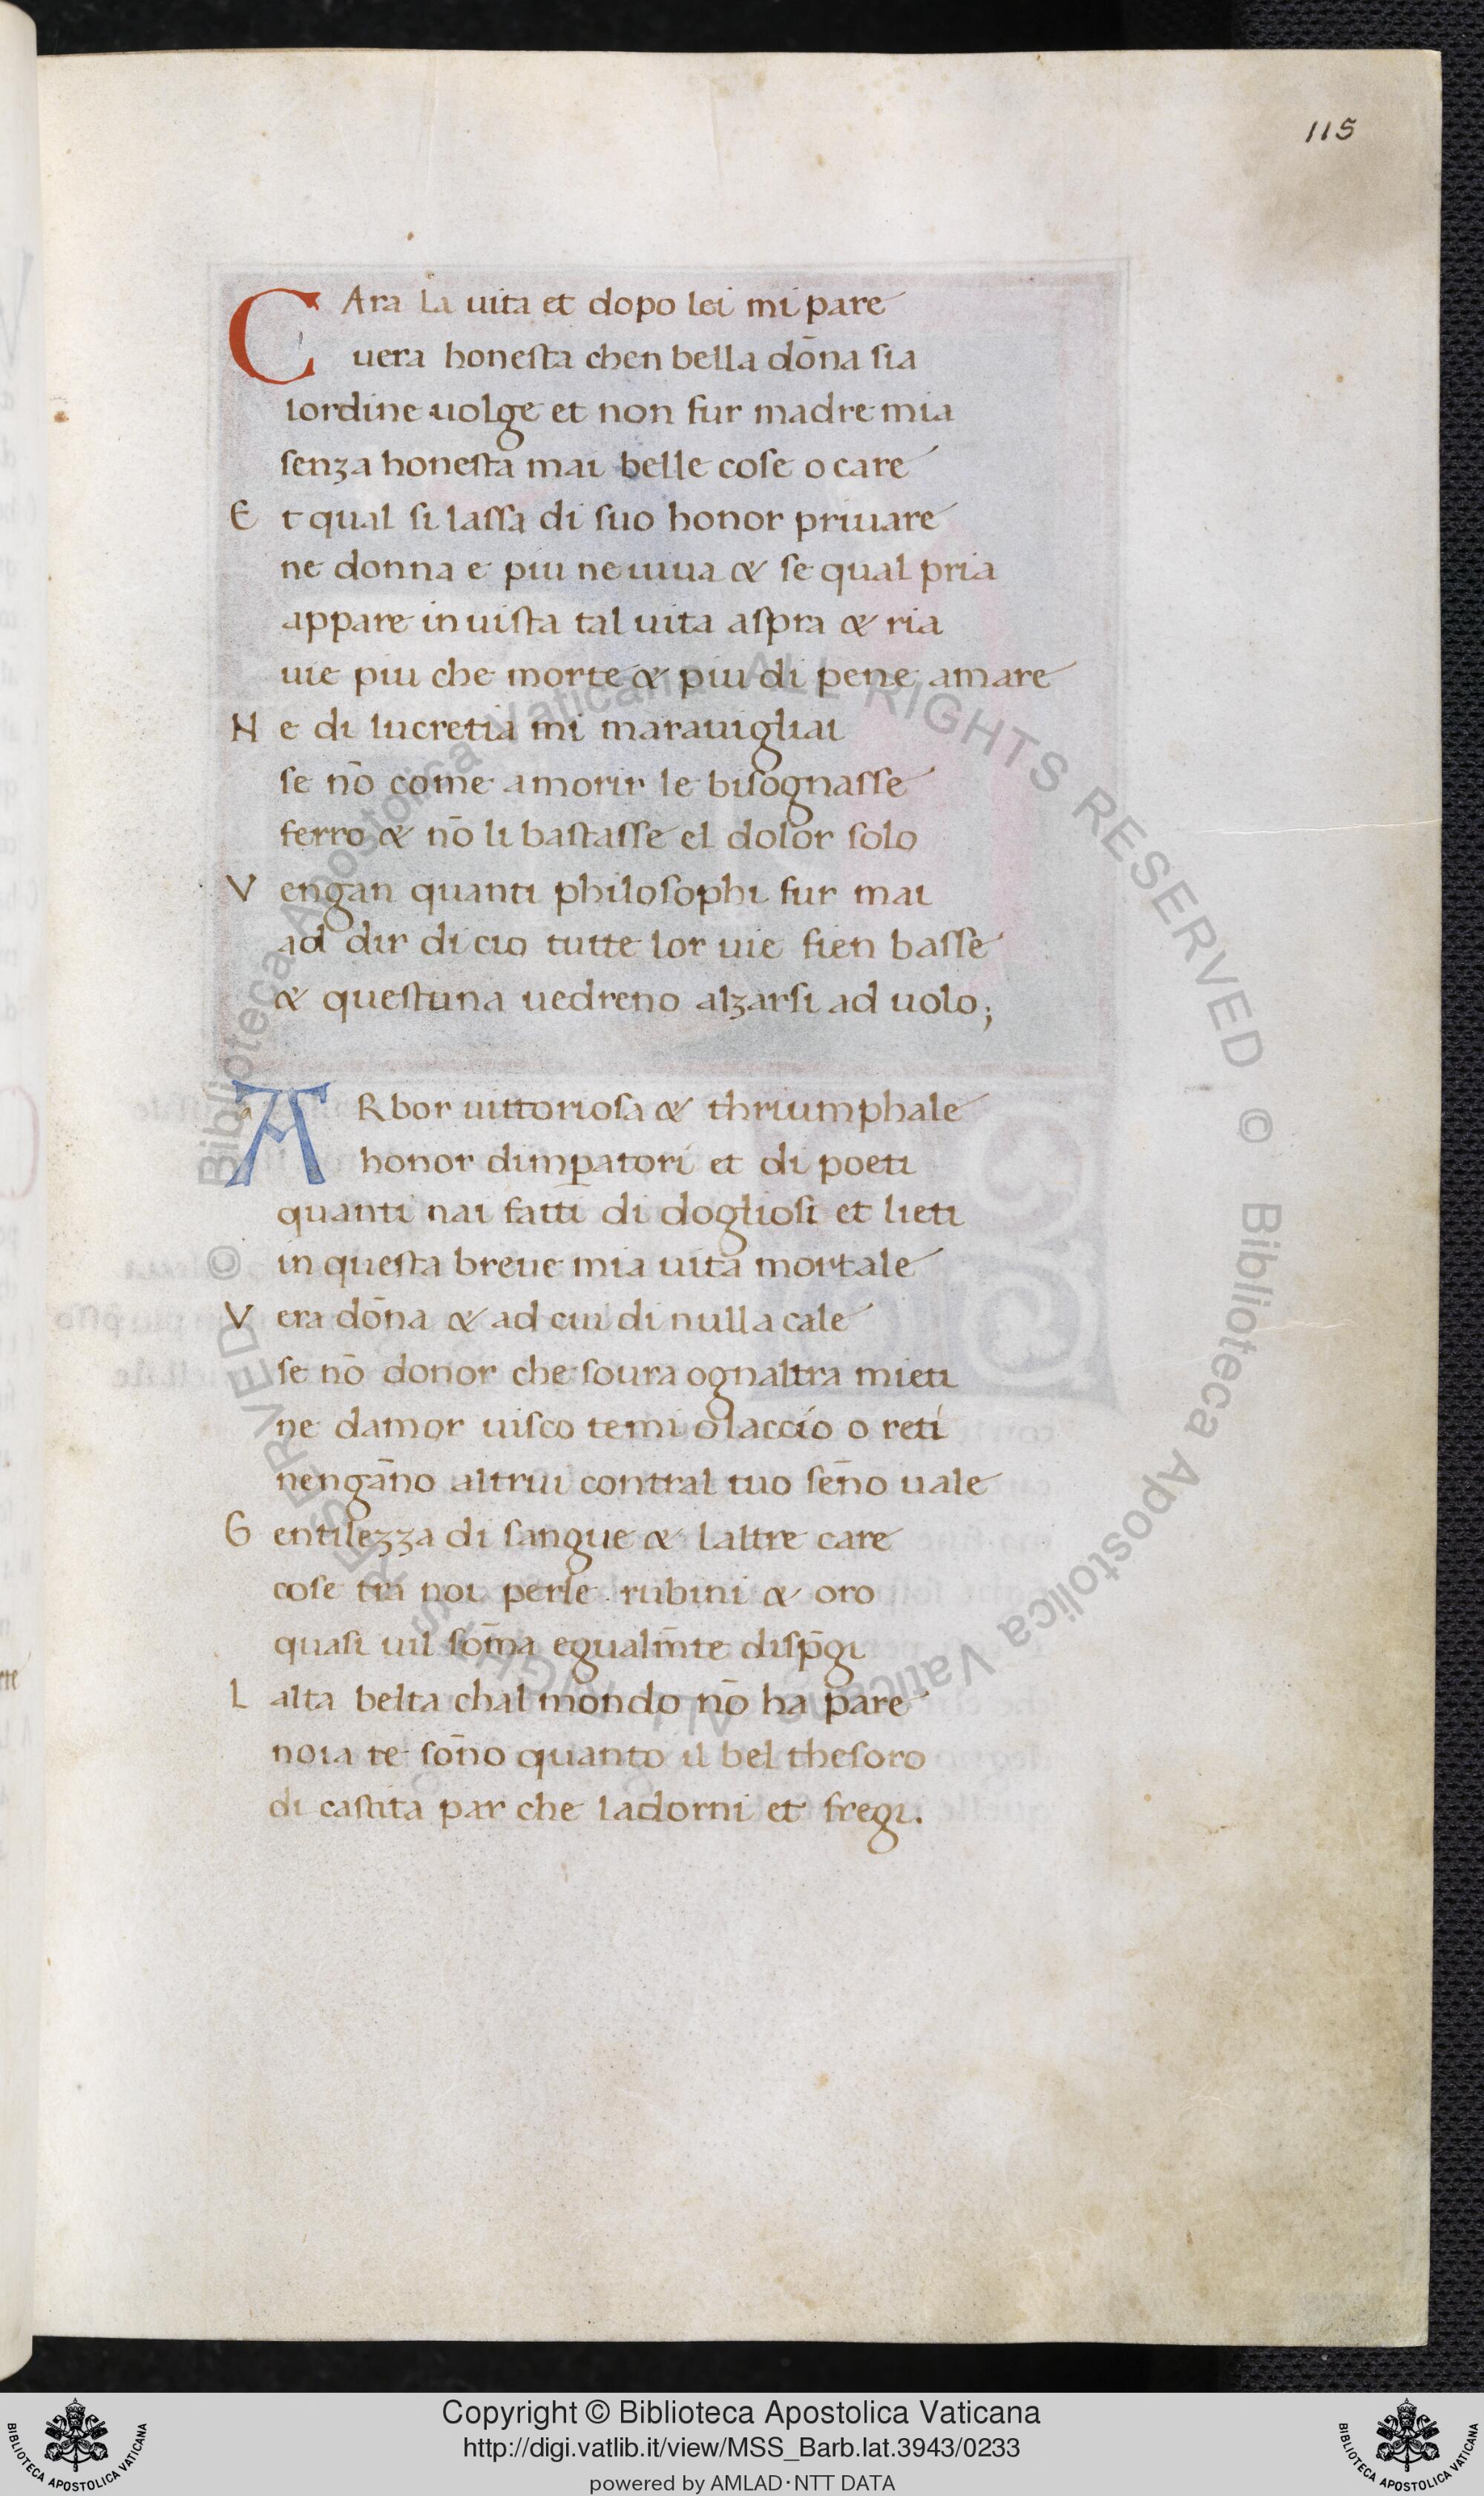 115
CAra la uita et dopo lei mi pare
uera honesta chen bella dōna sia
lordine uolge et non fur madre mia
senza honesta mai belle cose o care
E t qual si lassa di suo honor priuare
ne donna e piu ne uiua & se qual pria
appare in uista tal uita aspra & ria
uie piu che morte & piu di pene amare
N e di lucretia mi marauigliai
se nō come a morir le bisognasse
ferro & nō li bastasse el dolor solo
V engan quanti philosophi fur mai
ad dir di cio tutte lor uie fien basse
& questuna uedreno alzarsi ad uolo;
ARbor uittoriosa & thriumphale
honor dimꝑatori et di poeti
quanti nai fatti di dogliosi et lieti
in questa breue mia uita mortale
V era dōna & ad cui di nulla cale
se nō donor che soura ognaltra mieti
ne damor uisco temi o laccio o reti
nengāno altrui contral tuo sēno uale
G entilezza di sangue & laltre care
cose tra noi perle rubini & oro
quasi uil sōma egualm̄te disp̄gi
L alta belta chal mondo nō ha pare
noia te sōno quanto il bel thesoro
di castita par che ladorni et fregi.
© Biblioteca Apostolica Vaticana ALL RIGHTS RESERVED © Biblioteca Apostolica Vaticana ALL RIGHTS RESERVED
BIBLIOTECA APOSTOLICA VATICANA
Copyright © Biblioteca Apostolica Vaticana
http://digi.vatlib.it/view/MSS_Barb.lat.3943/0233
powered by AMLAD·NTT DATA
BIBLIOTECA APOSTOLICA VATICANA